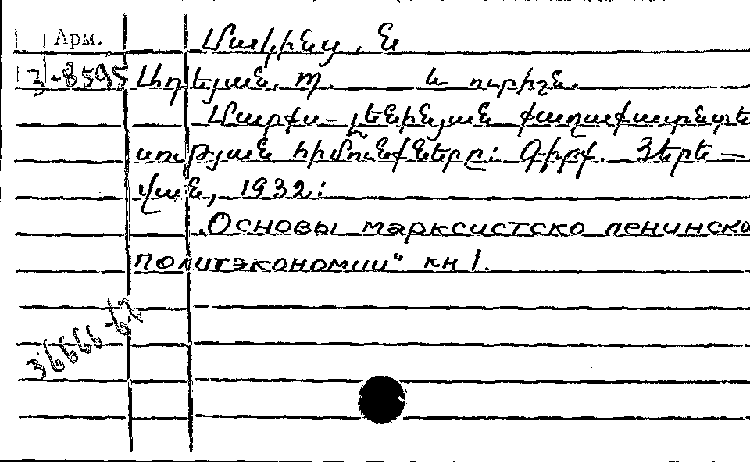 Арм.
3-8595
Մալինա, Ն
և ուրիշն.
Մարքս-լենինյան քաղաքատնտե
սության հիմունքները: Գիրք. Յերե-
վան, 1932:
"Основы марксистско ленинско
политэкономии" кн 1.
36666-62